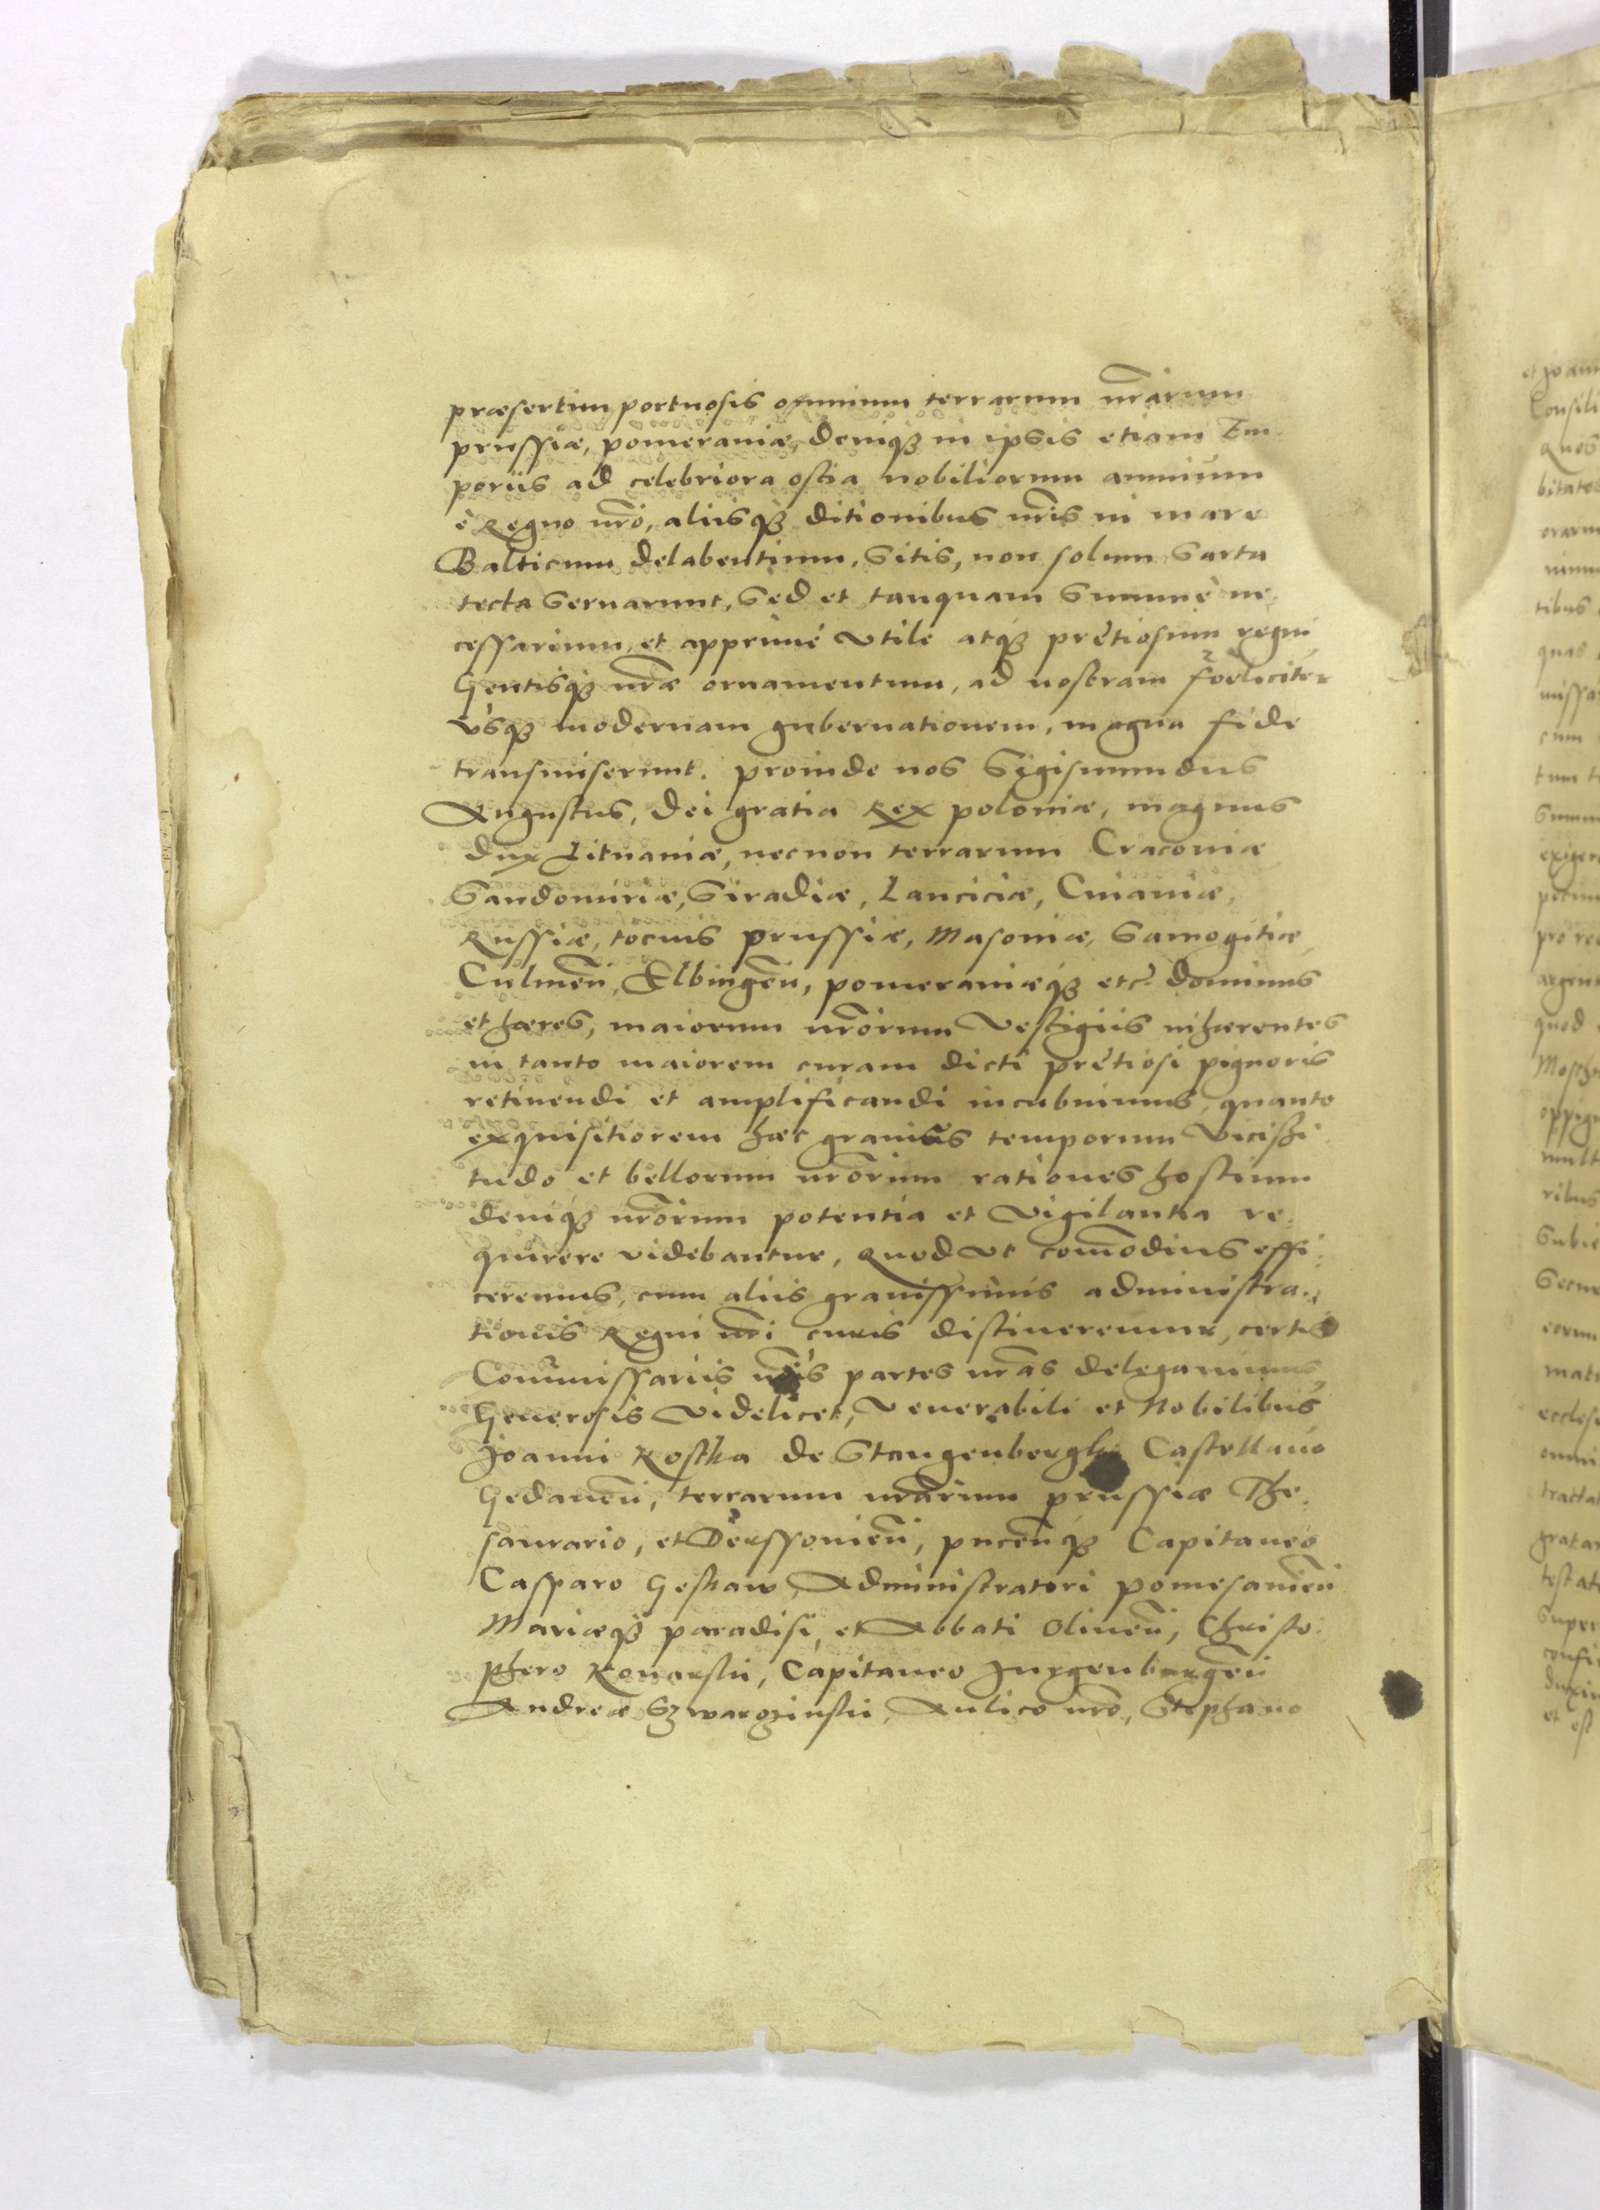 præsertim portuosis omnium terrarum nr̃arum
prussiæ, pomeraniæ, deniqꝫ in ipsis etiam Em-
poriis ad celebriora ostia nobiliorum amnium
è Regno nr̃o, aliisqꝫ ditionibus nr̃is in mare
Balticum delabentium, sitis, non solum sarta
tecta seruarunt, sed et tanquam summè ne-
cessarium, et apprimè vtile atqꝫ prętiosum regni
Gentisqꝫ nr̃æ ornamentum, ad nostram fœliciter
vsqꝫ modernam gubernationem, magna fide
transmiserunt. proinde nos Sigismundus
Augustus, Dei gratia Rex poloniæ, magnus
dux Lituaniæ, necnon terrarum Cracouiæ
Sandomiriæ, Siradiæ, Lanciciæ, Cuiauiæ,
Russiæ, tocius prussiæ, Masouiæ, Samogitiæ
Culmeñ, Elbingeñ, pomeraniæqꝫ etc̃. dominus
et hæres, maiorum nr̃orum vestigiis inhærentes
in tanto maiorem curam dicti prętiosi pignoris
retinendi et amplificandi incubuimus, quanto
exquisitiorem hæc grauis temporum vicissi-
tudo et bellorum nr̃orum rationes hostium
deniqꝫ nr̃orum potentia et vigilantia re-
quirere videbantur, Quod vt com̃odius effi-
ceremus, cum aliis grauissimis administra-
tionis Regni nr̃i curis distineremur, certis
Com̃missariis nr̃is partes nr̃as delegauimus,
Generosis videlicet, Venerabili et Nobilibus
Joanni Kostka de Stangenbergk Castellano
Gedaneñ, terrarum nr̃arum prussiæ The-
saurario, et Derssouieñ, puceñqꝫ Capitaneo
Casparo Geskaw, Administratori pomesanieñ
Mariæqꝫ paradisi, et Abbati Oliueñ, Christo-
phero Konarski, Capitaneo Jnygenburgeñ
Andreæ Szwarozinski, Aulico nr̃o, Stephano